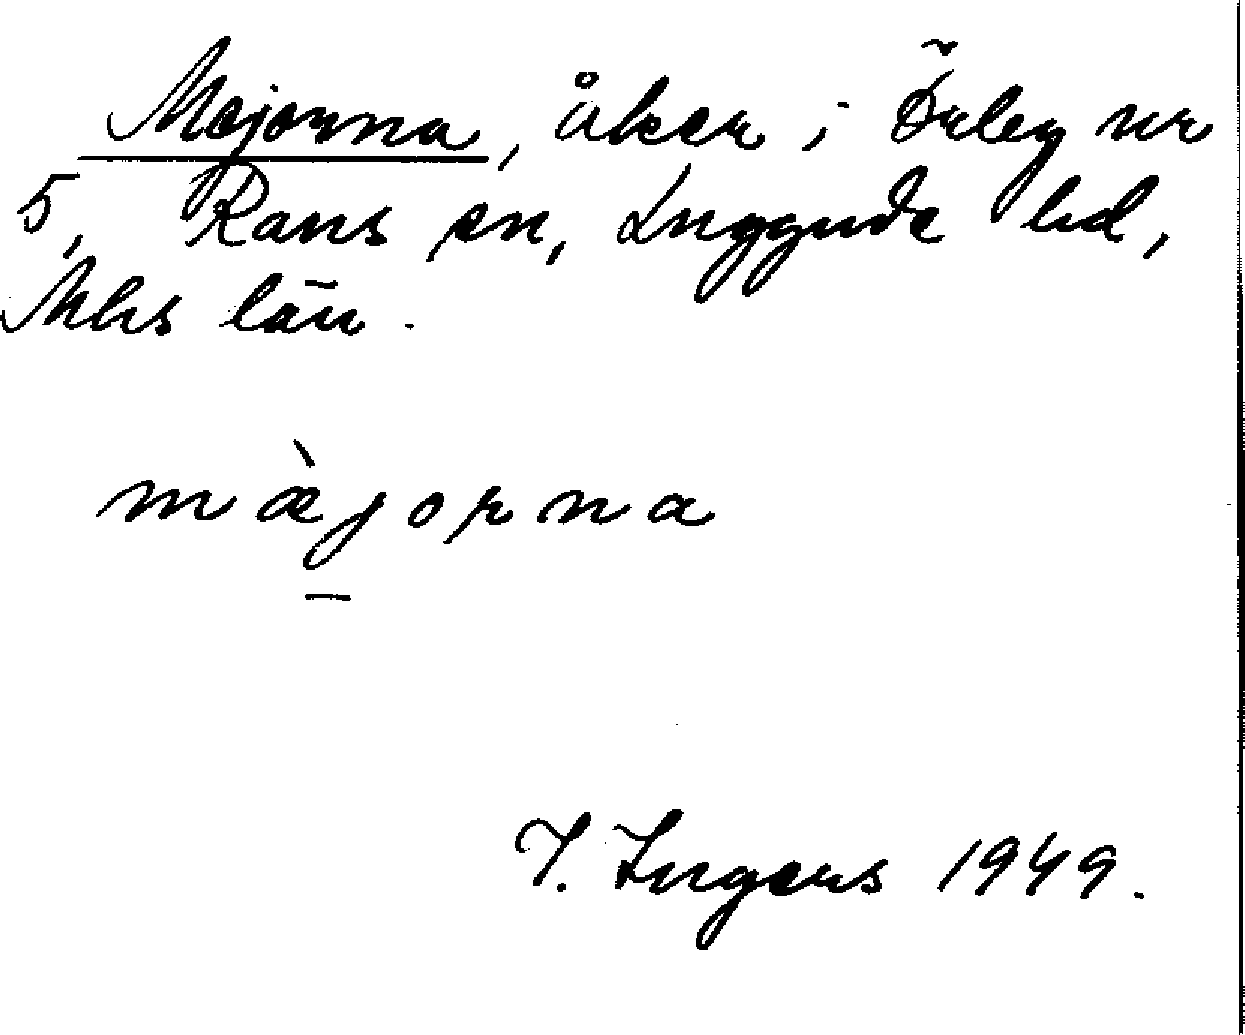 Mejorna, åker i Örleg nr
5, Raus sn, Luggude hd,
Mhs län.
mæ̀jorna
I. Ingers 1949.